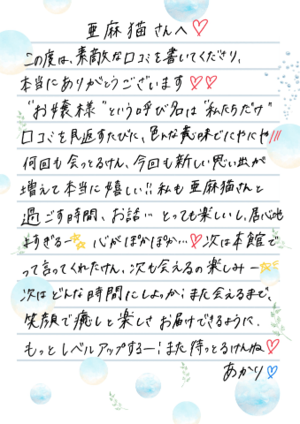 亜麻猫さんへ♡
この度は、素敵な口コミを書いてくださり、
本当にありがとうございます♡♡
"お嬢様"という呼び名は"私たちだけ"
口コミを見返すたびに、色んな意味でにやにや///
何回も会っとるけん、今回も新しい思い出が
増えて本当に嬉しい!!私も亜麻猫さんと
過ごす時間、お話… とっても楽しいし、居心地
よすぎるー☆ 心がぽかぽか…♡次は本館で
って言ってくれたけん、次も会えるの楽しみー☆
次はどんな時間にしよっか!また会えるまで、
笑顔で癒しと楽しさお届けできるように、
もっとレベルアップするー!また待っとるけんね♡
あかり♡